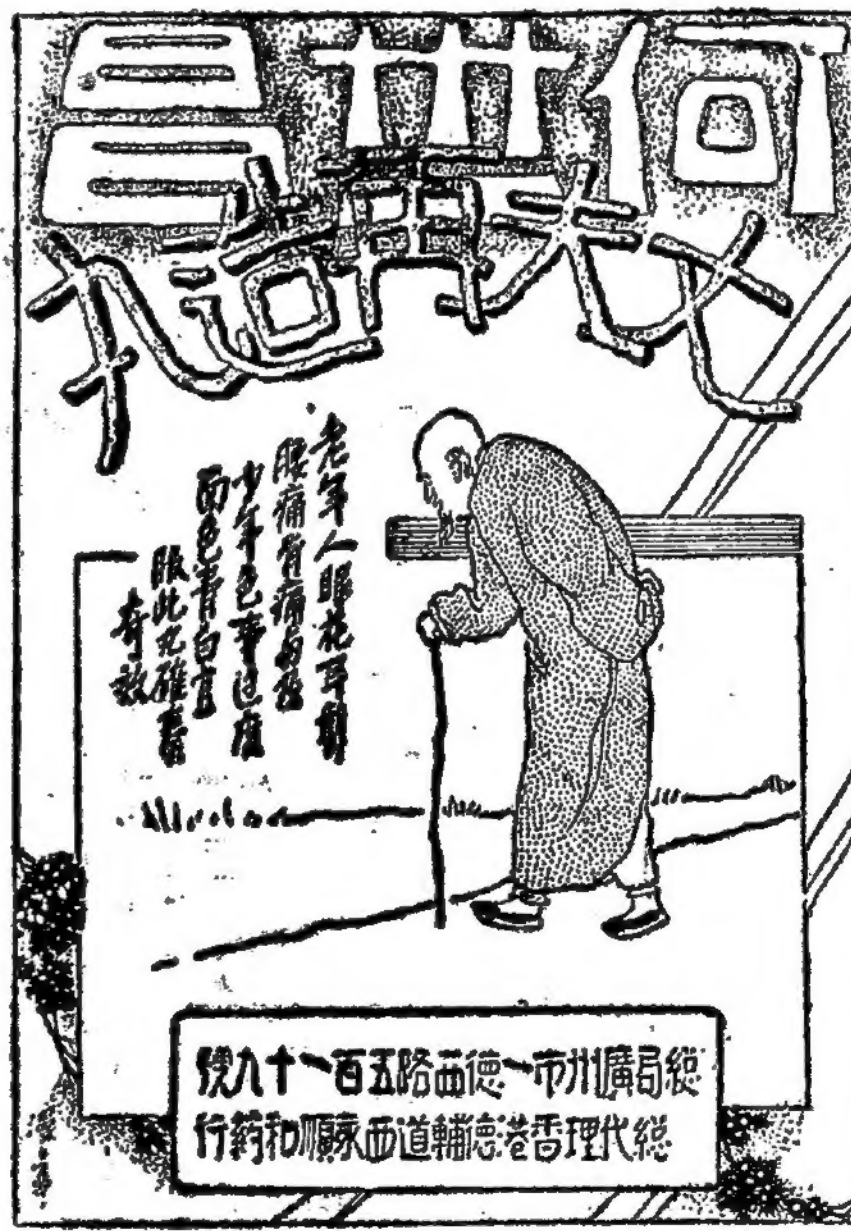 何世昌
再造丸
老年人眼花耳聾
腰痛骨痛
少年色事過度
面色青白宜
服此丸確奏
奇效
總局廣州市一德西路五百一十九號
總代理香港德輔道西永順和葯行